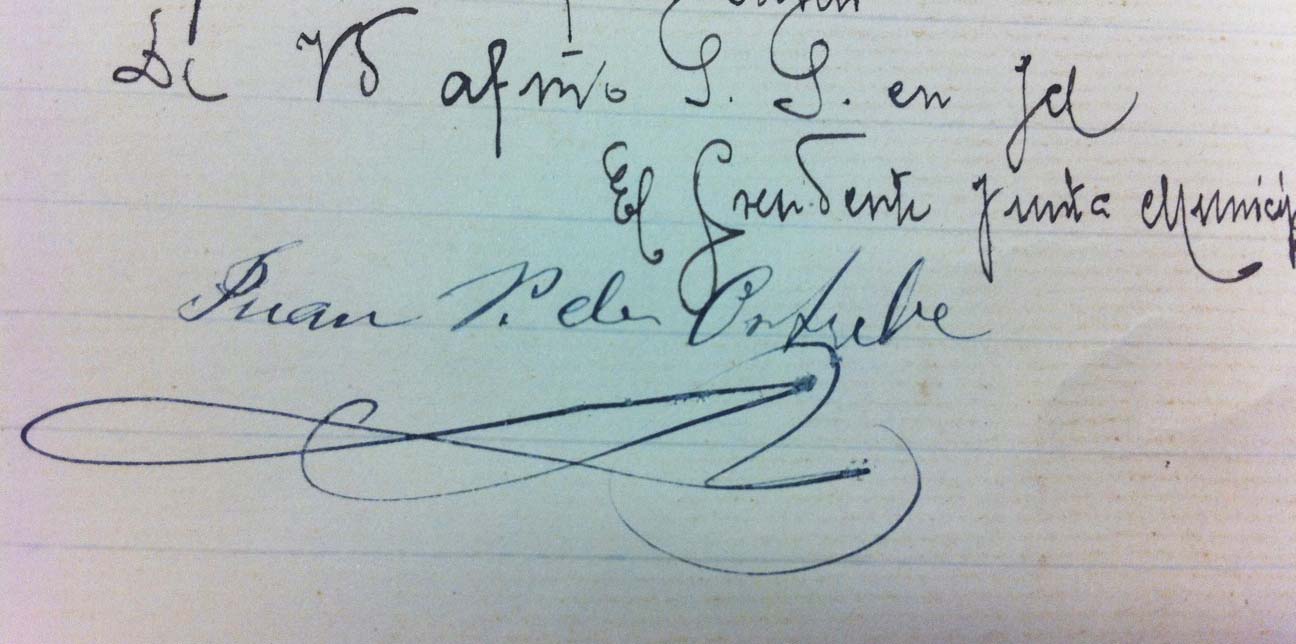 De Vd afmo S. S. en Jd
El Presidente Junta Munici
Juan P. de Ortube